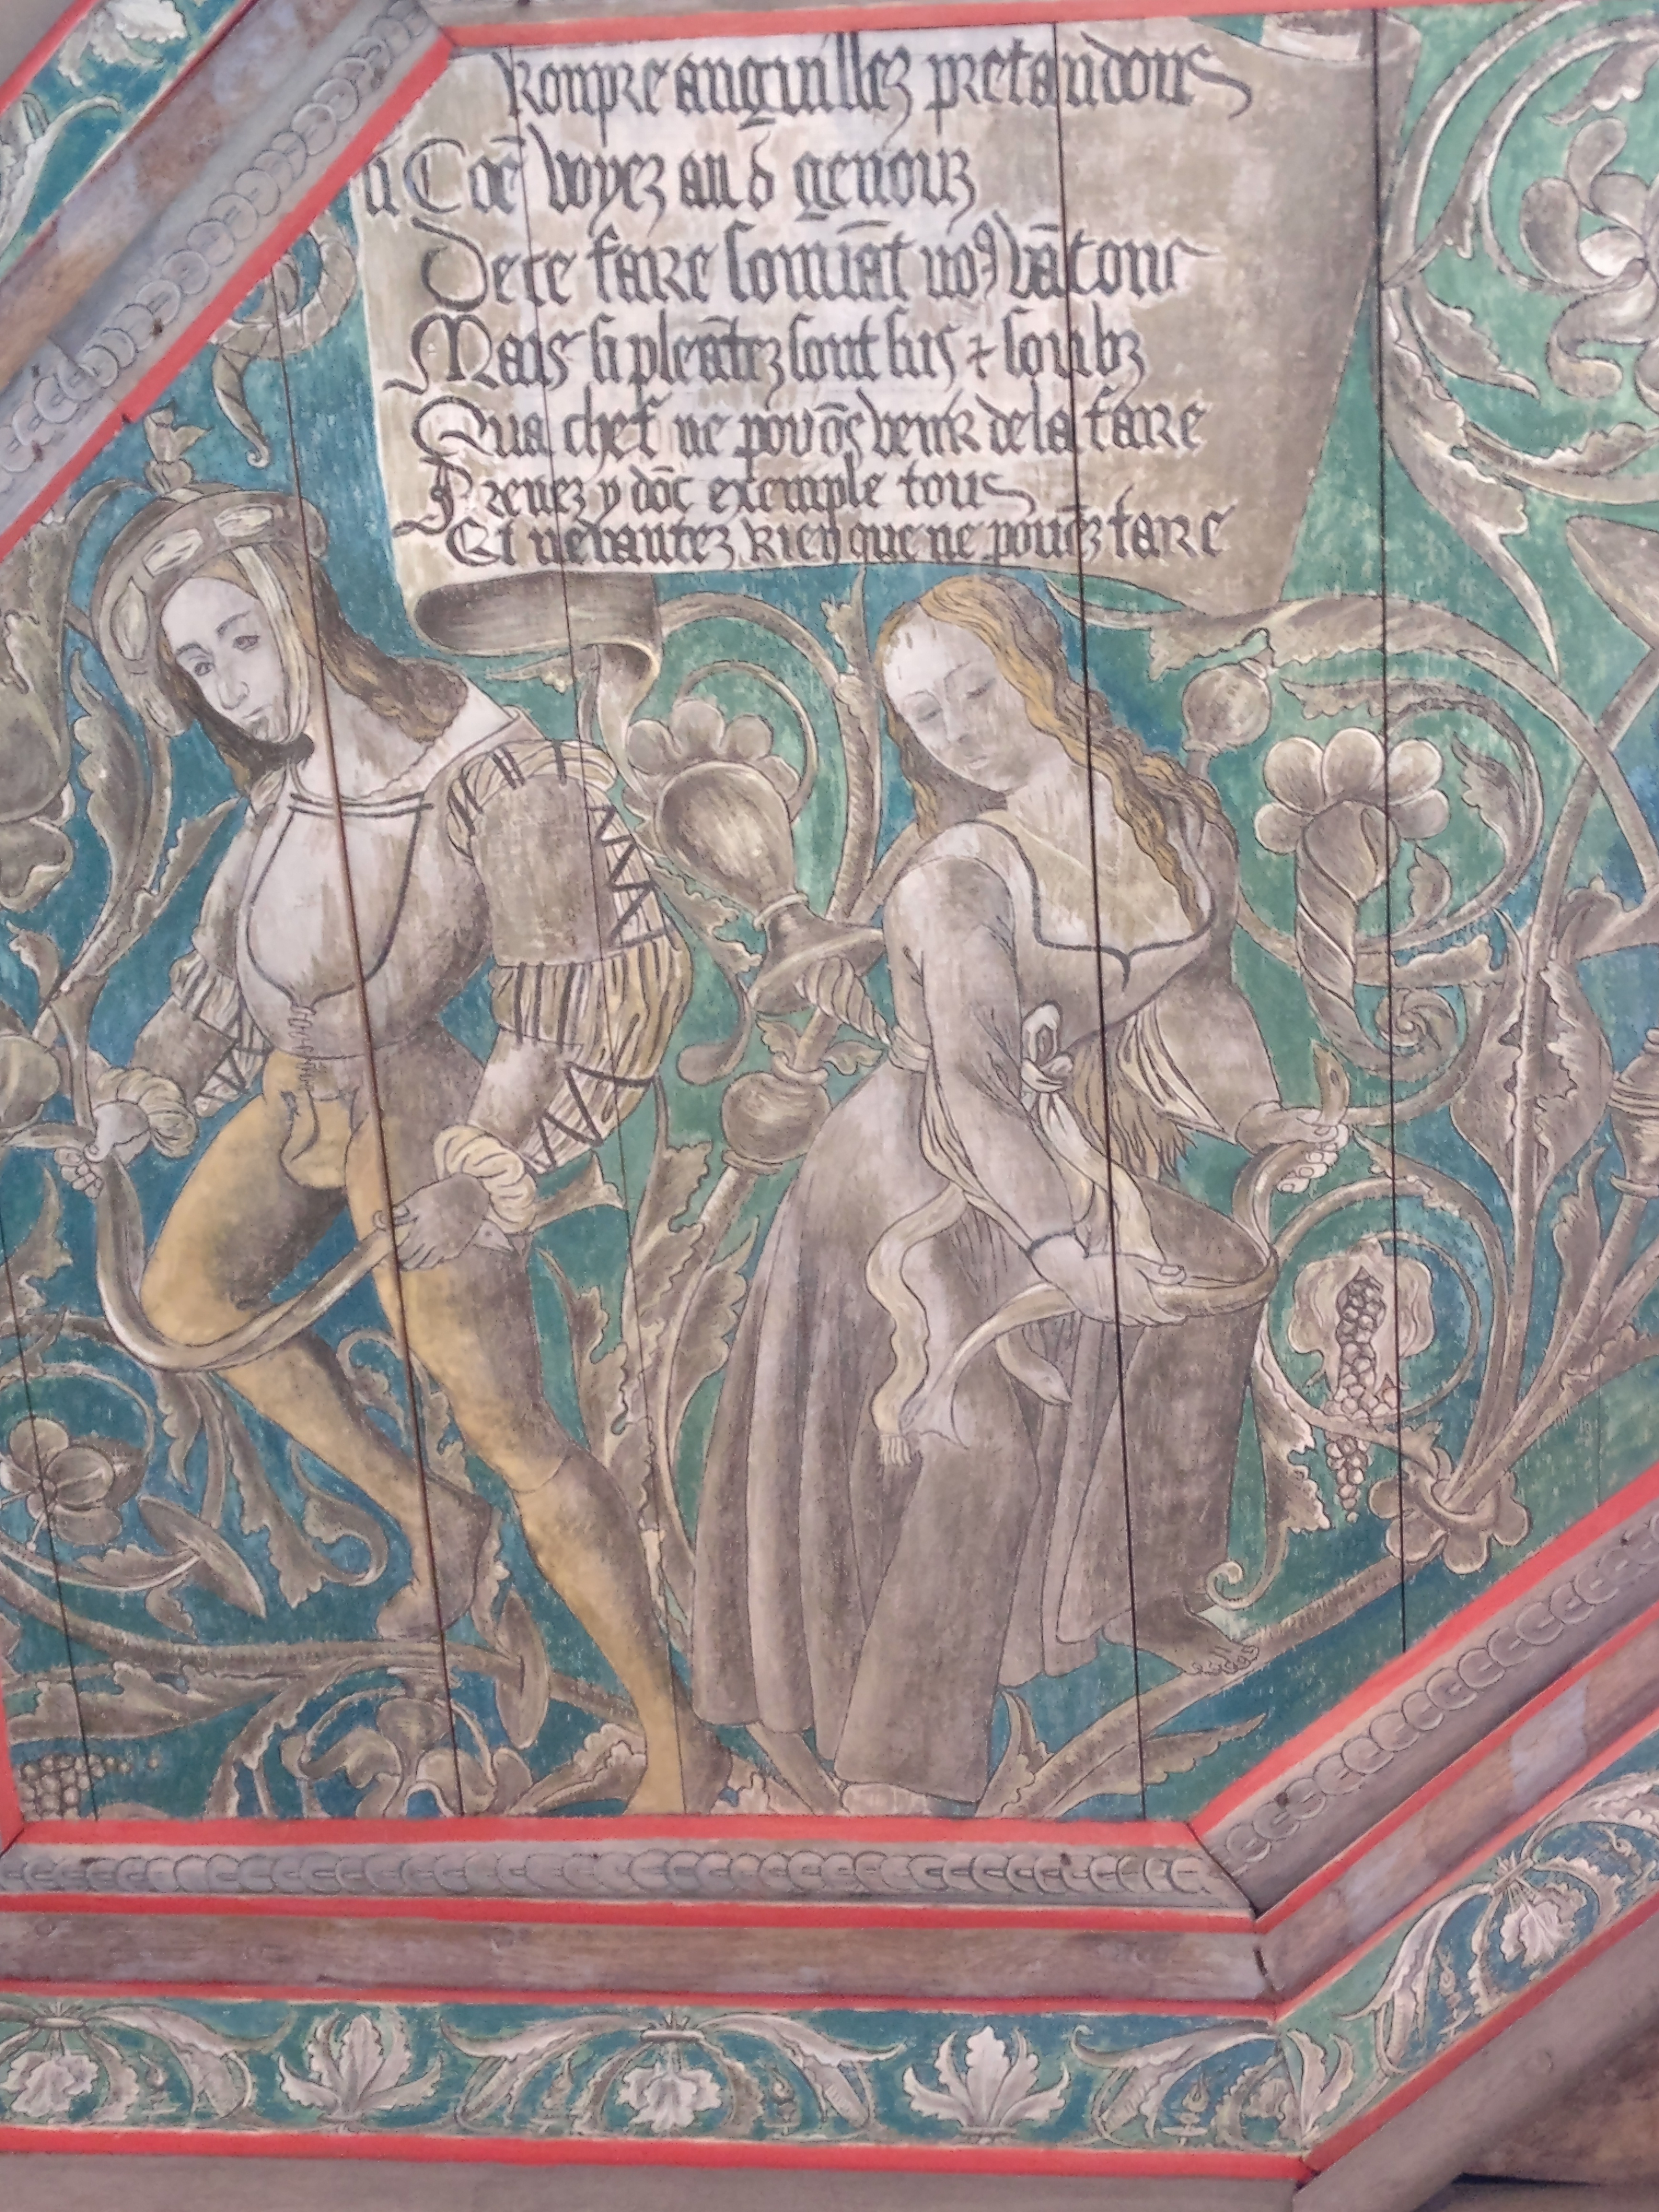 Rompre anguillez pretandons
Coē voyez au d genouz
De ce faire souuāt no9 vātons
Mais si pleātez sont sus & soubz
Qua chef ne povōs venir de la faire
Prenez y dōc exemple tous
Et ne vantez rien que ne pouēz faire